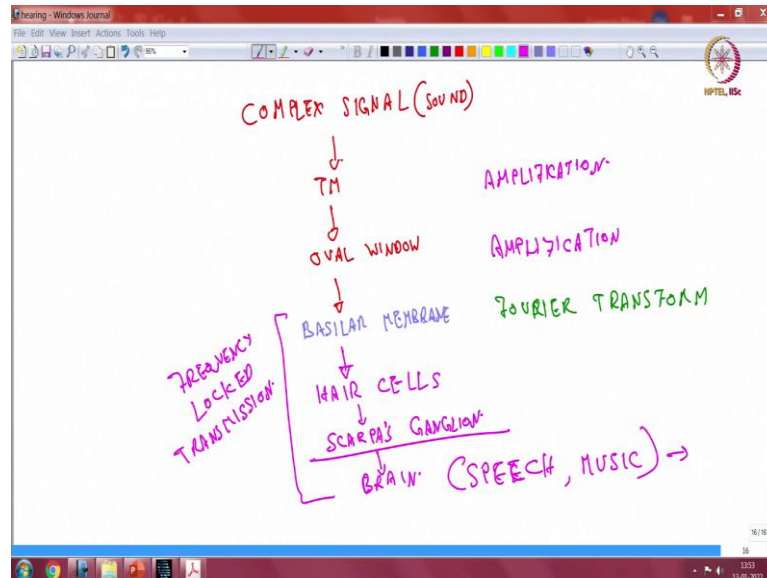 hearing - Windows Journal
File Edit View Insert Actions Tools Help
NPTEL, IISc
COMPLEX SIGNAL (SOUND)
TM
AMPLIFICATION
OVAL WINDOW
AMPLIFICATION
BASILAR MEMBRANE
FOURIER TRANSFORM
FREQUENCY
LOCKED
TRANSMISSION
HAIR CELLS
SCARPA'S GANGLION
BRAIN. (SPEECH, MUSIC)
16/16
16
13:53
12-01-2022